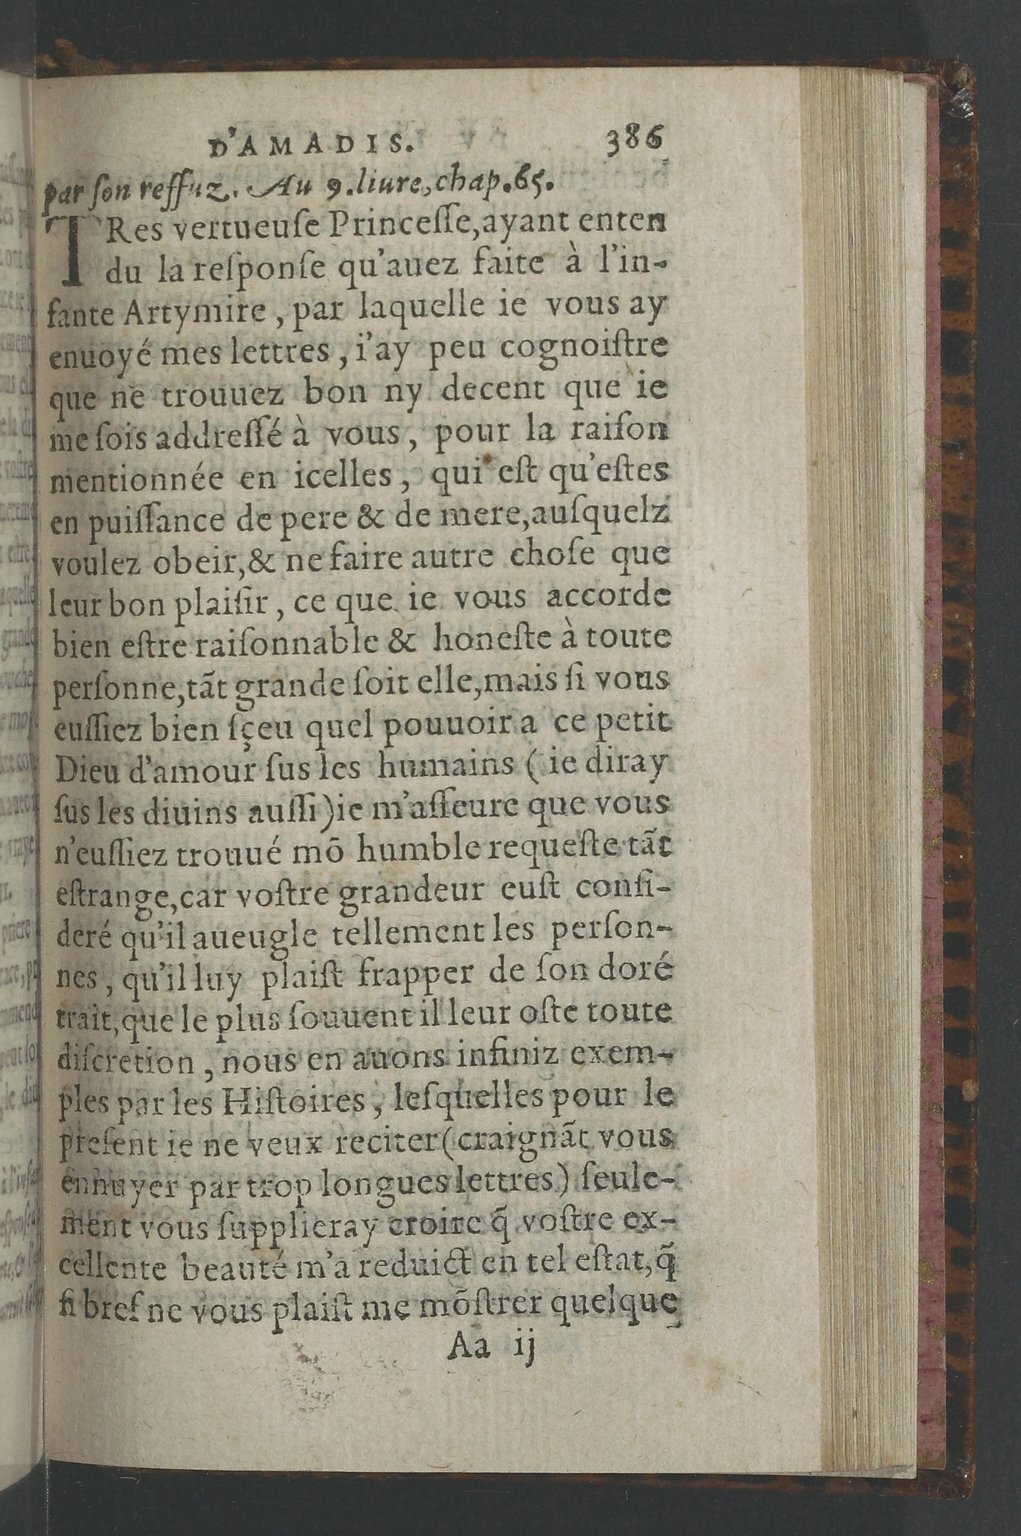 D'AMADIS. 386
par ſon reffuz. Au 9. liure, chap. 65.
TRes vertueuſe Princeſſe, ayant enten
du la reſponſe qu'auez faite à l'in-
fante Artymire, par laquelle ie vous ay
enuoyé mes lettres, i'ay peu cognoiſtre
que ne trouuez bon ny decent que ie
me ſois addreſſé à vous, pour la raiſon
mentionnée en icelles, qui eſt qu'eſtes
en puiſſance de pere & de mere, auſquelz
voulez obeir, & ne faire autre choſe que
leur bon plaiſir, ce que ie vous accorde
bien eſtre raiſonnable & honeſte à toute
perſonne, tãt grande ſoit elle, mais ſi vous
euſſiez bien ſçeu quel pouuoir a ce petit
Dieu d'amour ſus les humains (ie diray
ſus les diuins auſſi) ie m'aſſeure que vous
n'euſſiez trouué mõ humble requeſte tãt
eſtrange, car voſtre grandeur euſt conſi-
deré qu'il aueugle tellement les perſon-
nes, qu'il luy plaiſt frapper de ſon doré
trait, que le plus ſouuent il leur oſte toute
diſcretion, nous en auons infiniz exem-
ples par les Hiſtoires, leſquelles pour le
preſent ie ne veux reciter (craignãt vous
ennuyer par trop longues lettres) ſeule-
ment vous ſupplieray croire q̃ voſtre ex-
cellente beauté m'a reduict en tel eſtat, q̃
ſi bref ne vous plaiſt me mõſtrer quelque
Aa ij